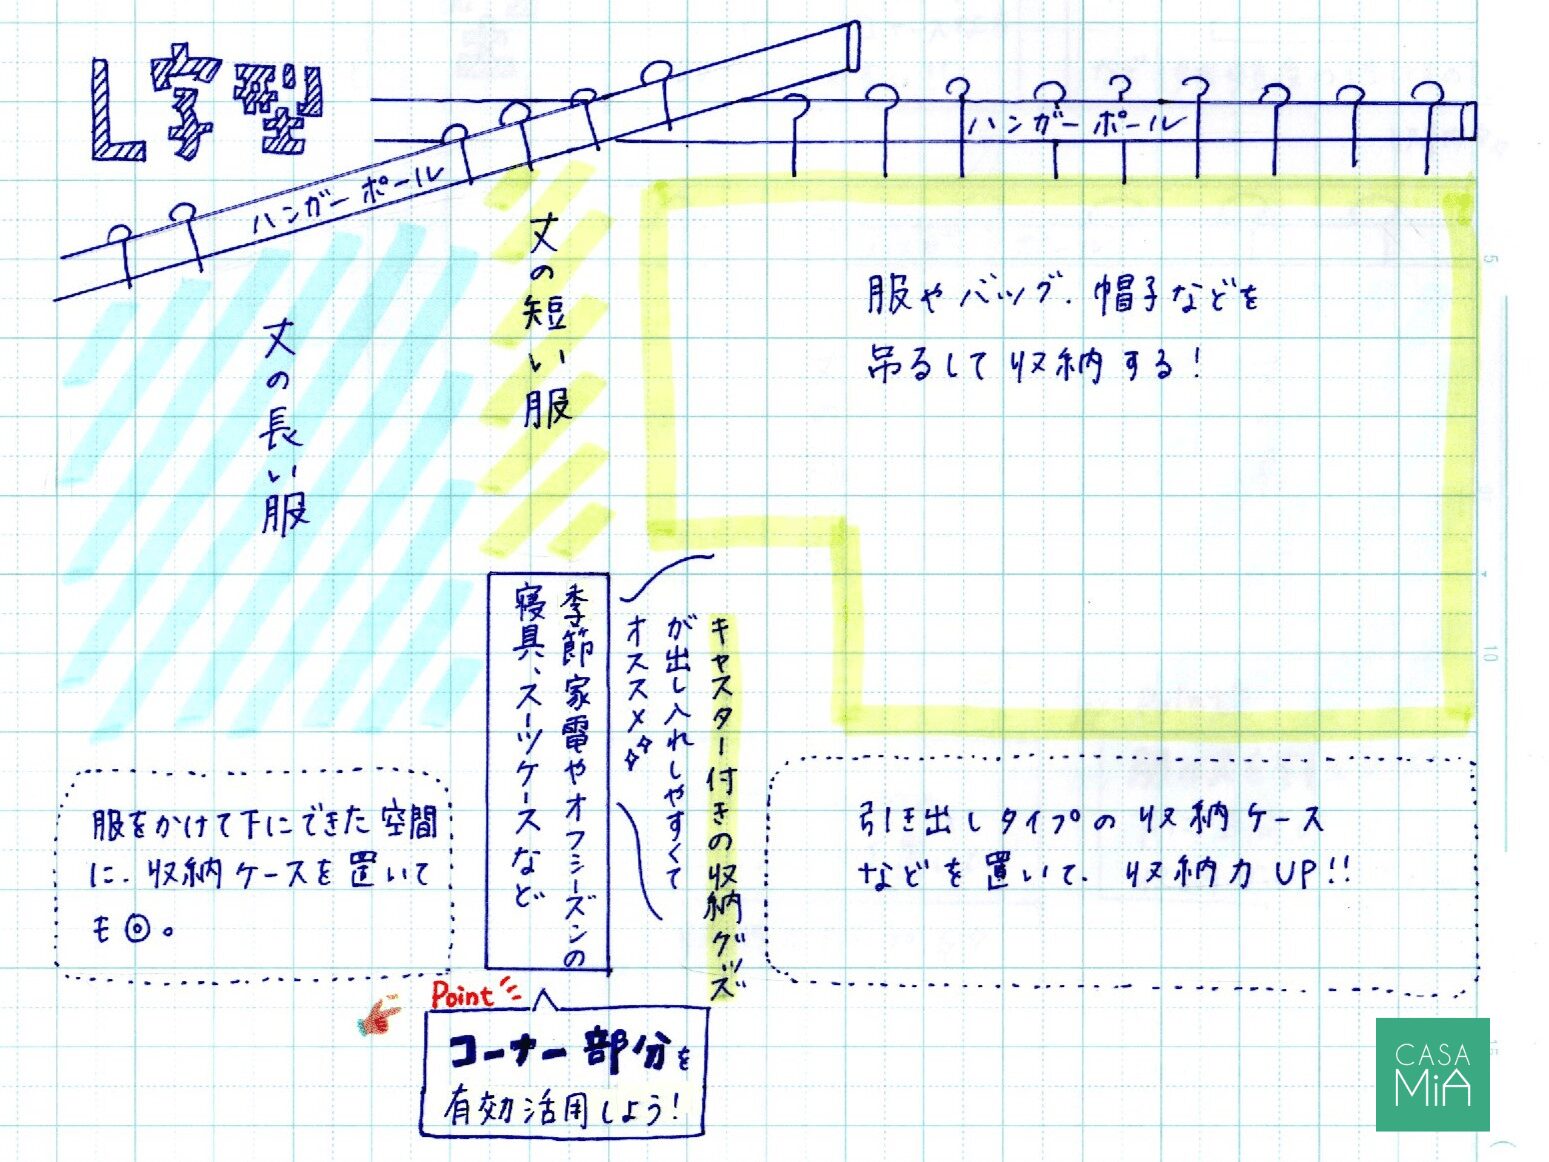 L字型
ハンガーポール
ハンガーポール
丈の長い服
丈の短い服
服やバッグ、帽子などを
吊るして収納する!
季節家電やオフシーズンの
寝具、スーツケースなど
キャスター付きの収納グッズ
が出し入れしやすくて
オススメ
服をかけて下にできた空間
に、収納ケースを置いて
も◎。
引き出しタイプの収納ケース
などを置いて、収納力UP!!
Point
コーナー部分を
有効活用しよう!
CASA
MiA
5
10
15